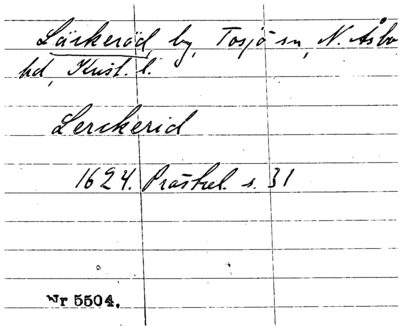 Läckeröd, by, Tosjö sn, N. Åsbo
hd, Krist. l.
Lerckerid
1624. Prästrel. s. 31
Nr 5504.